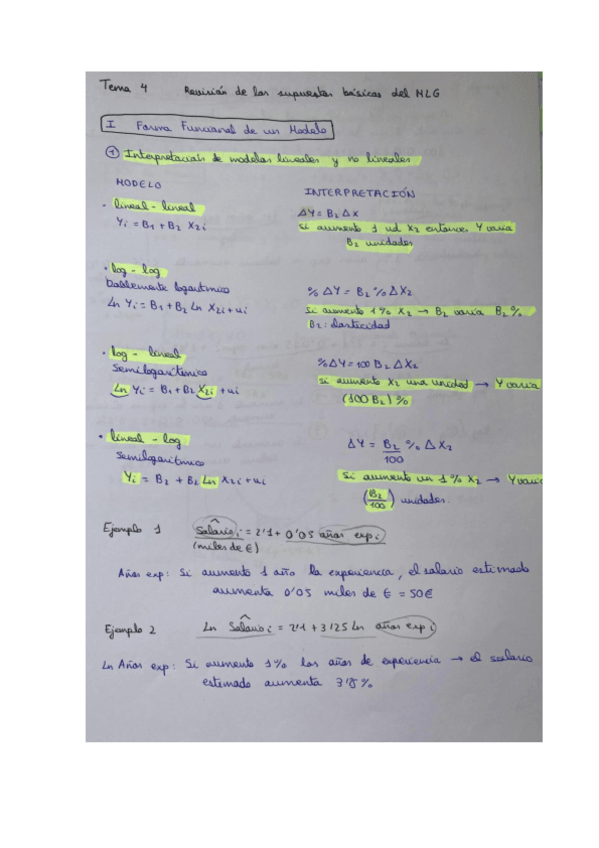 Tema 4 Revisión de los supuestos básicos del MLG
I Forma Funcional de un Modelo
① Interpretación de modelos lineales y no lineales
MODELO INTERPRETACIÓN
· lineal - lineal ΔY = B₂ Δx
Yi = B₁ + B₂ X₂i Si aumenta 1 ud X₂ entonces Y varía
B₂ unidades
· log - log
Doblemente logarítmico % ΔY = B₂ % Δ X₂
Ln Yi = B₁ + B₂ Ln X₂i + ui Si aumenta 1% X₂ → B₂ varía B₂ %
B₂: elasticidad
· log - lineal %ΔY = 100 B₂ Δ X₂
Semilogarítmico Si aumenta X₂ una unidad → Y varía
Ln Yi = B₁ + B₂ X₂i + ui (100 B₂) %
· lineal - log ΔY = B₂/100 % Δ X₂
Semilogarítmico
Yi = B₂ + B₂ Ln X₂i + ui Si aumenta un 1% X₂ → Y varía
(B₂/100) unidades.
Ejemplo 1 Salario i = 2'1 + 0'05 años exp i
(miles de €)
Años exp: Si aumenta 1 año la experiencia, el salario estimado
aumenta 0'05 miles de € = 50€
Ejemplo 2 Ln Salario i = 2'1 + 3'25 Ln años exp i
Ln Años exp: Si aumenta 1% los años de experiencia → el salario
estimado aumenta %